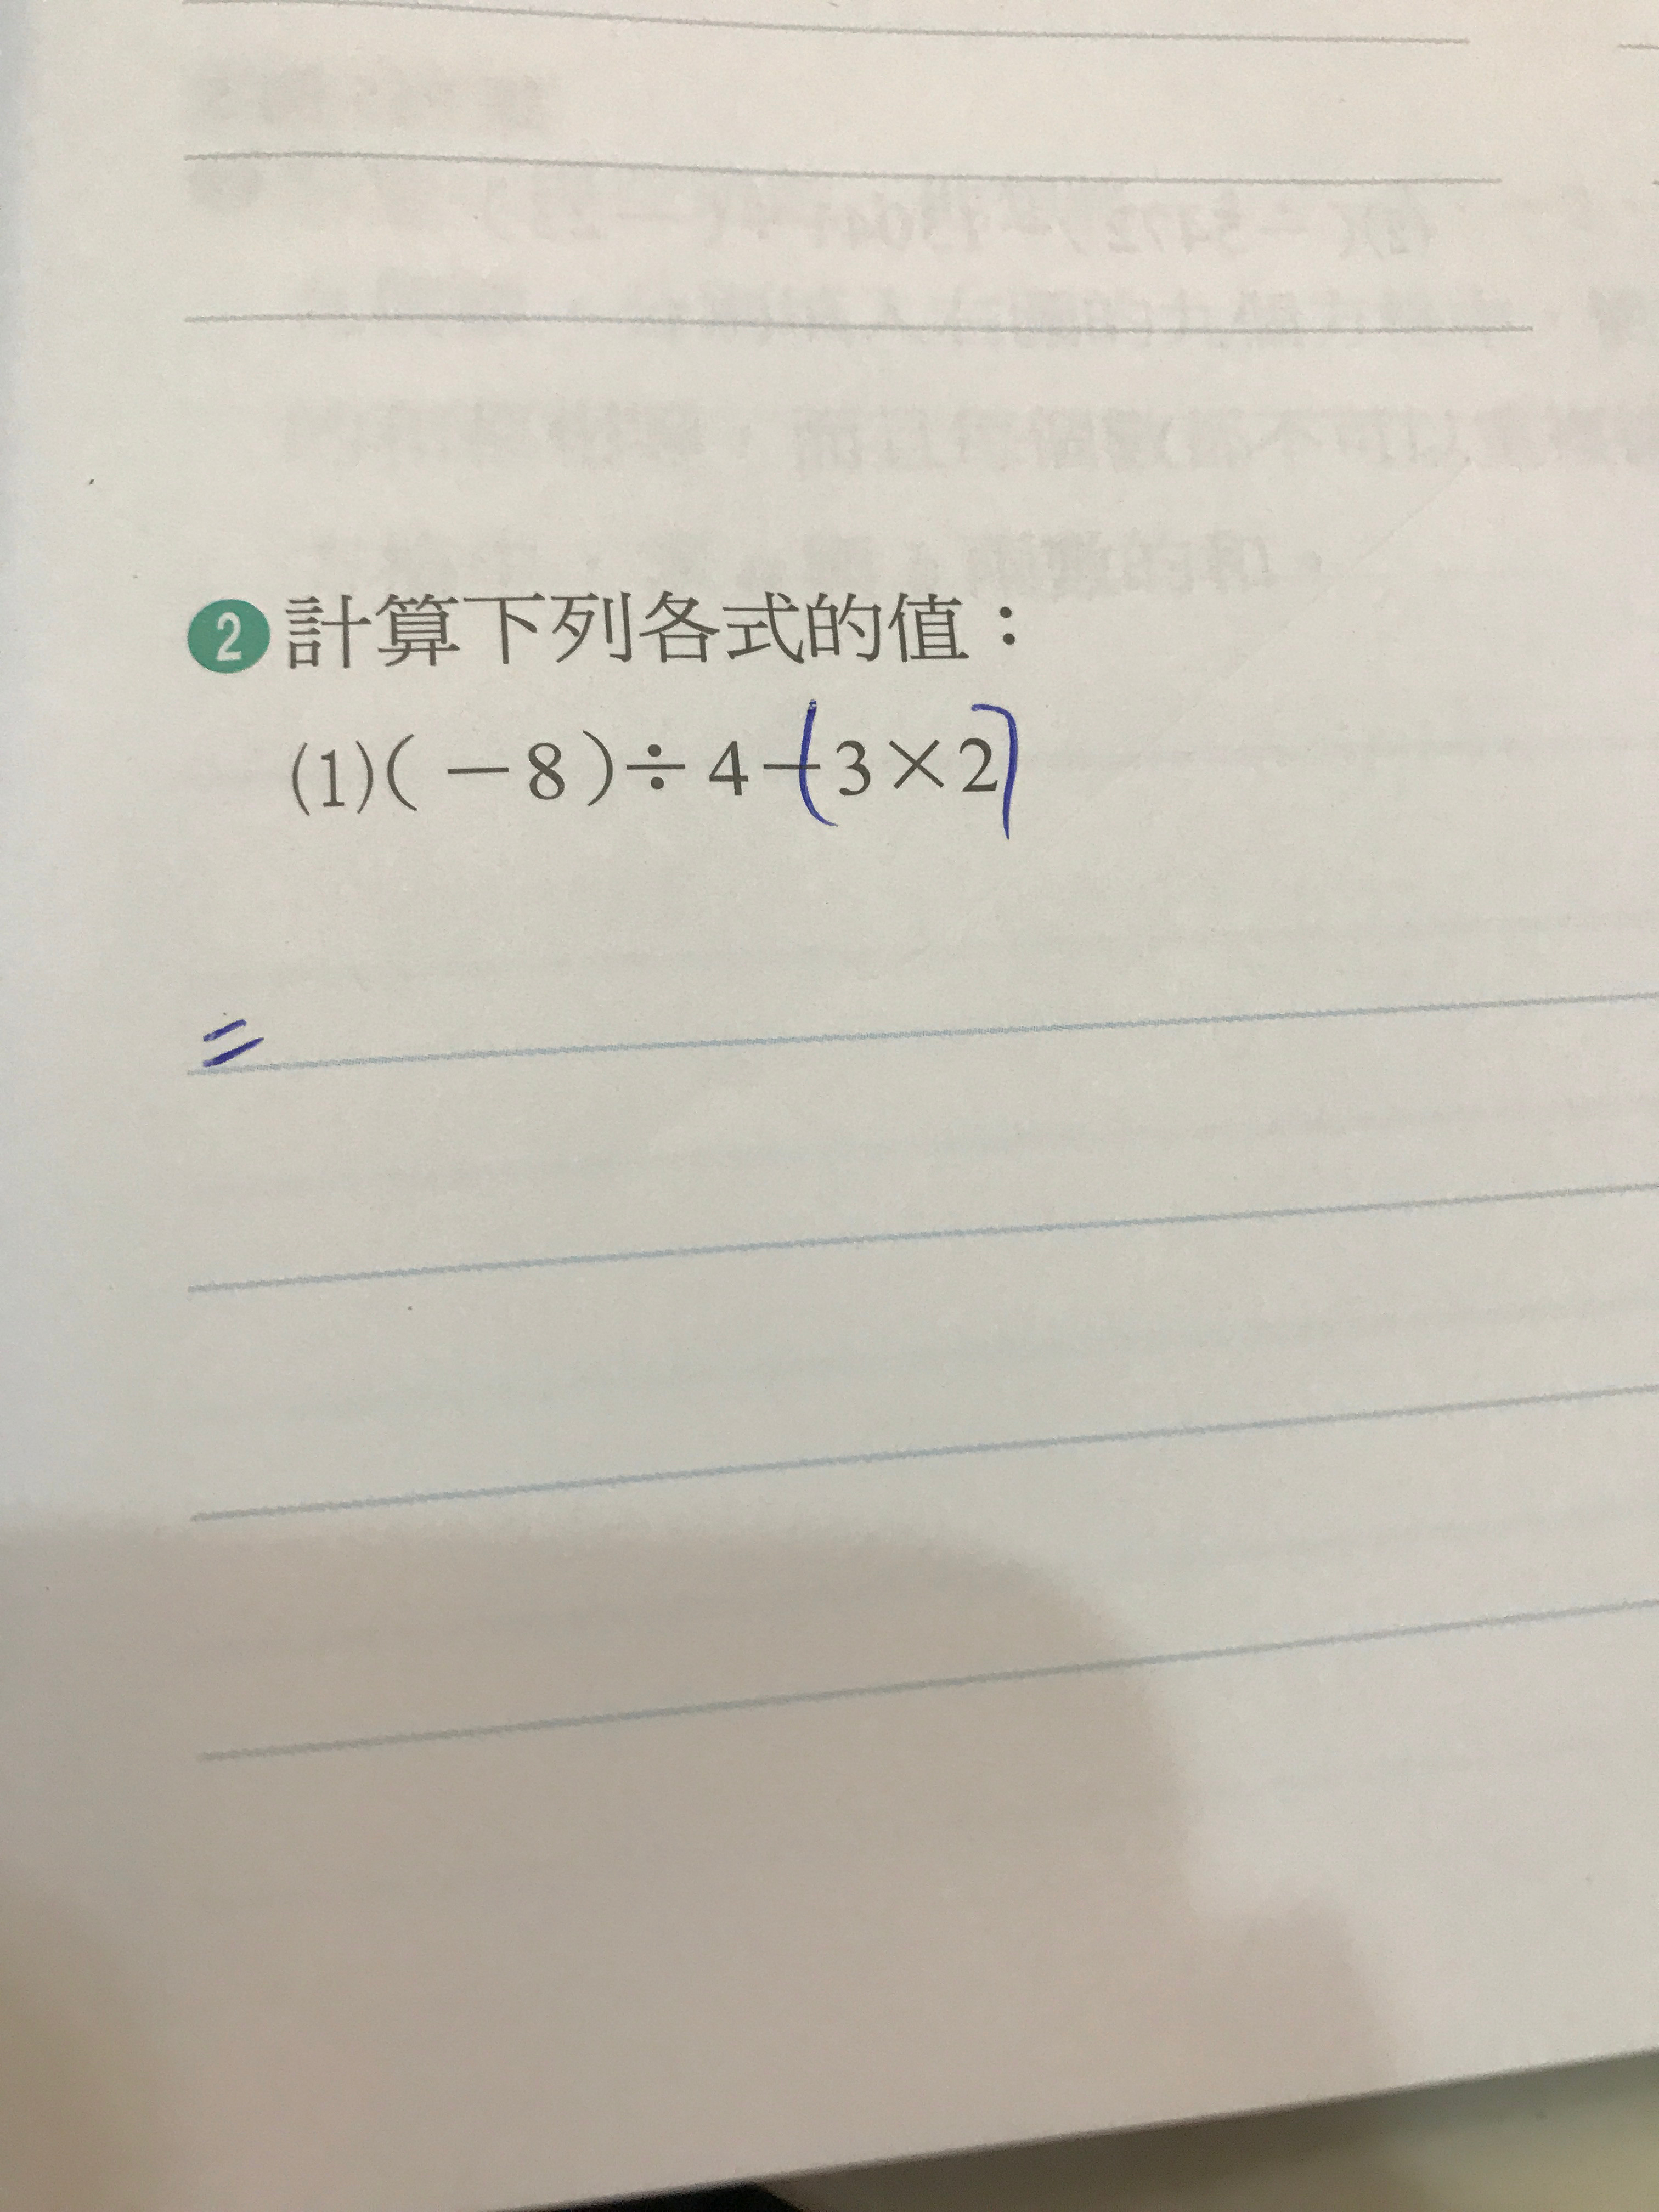 2 計算下列各式的值：
(1)(－8)÷4－(3×2)
=